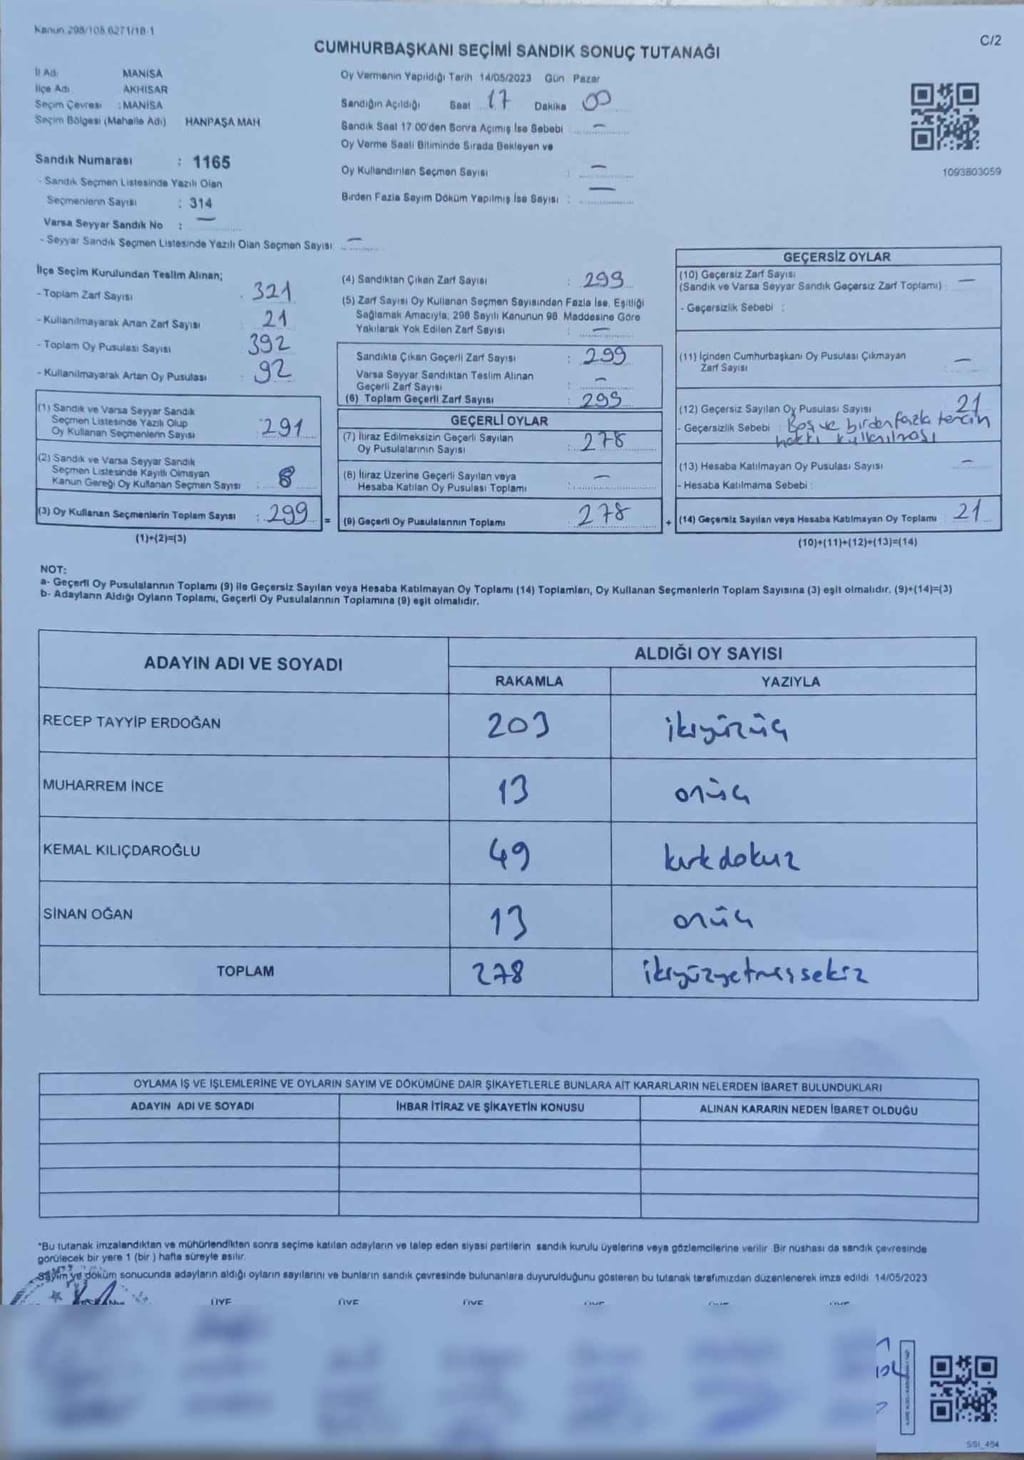 Kanun 298/105.6271/18.1
C/2
CUMHURBAŞKANI SEÇİMİ SANDIK SONUÇ TUTANAĞI
İl Adı MANİSA
İlçe Adı AKHİSAR
Seçim Çevresi : MANİSA
Seçim Bölgesi (Mahalle Adı) HANPAŞA MAH.
Sandık Numarası : 1165
- Sandık Seçmen Listesinde Yazılı Olan
Seçmenlerin Sayısı : 314
Varsa Seyyar Sandık No : —
- Seyyar Sandık Seçmen Listesinde Yazılı Olan Seçmen Sayısı —
Oy Vermenin Yapıldığı Tarih 14/05/2023 Gün Pazar
Sandığın Açıldığı Saat 17 Dakika 00
Sandık Saat 17.00'den Sonra Açımış İse Sebebi —
Oy Verme Saati Bitiminde Sırada Bekleyen ve
Oy Kullandırılan Seçmen Sayısı : —
Birden Fazla Sayım Döküm Yapılmış İse Sayısı : —
1093803059
İlçe Seçim Kurulundan Teslim Alınan;
- Toplam Zarf Sayısı : 321
- Kullanılmayarak Artan Zarf Sayısı : 21
- Toplam Oy Pusulası Sayısı : 392
- Kullanılmayarak Artan Oy Pusulası : 92
(1) Sandık ve Varsa Seyyar Sandık
Seçmen Listesinde Yazılı Olup
Oy Kullanan Seçmenlerin Sayısı : 291
(2) Sandık ve Varsa Seyyar Sandık
Seçmen Listesinde Kayıtlı Olmayan
Kanun Gereği Oy Kullanan Seçmen Sayısı : 8
(3) Oy Kullanan Seçmenlerin Toplam Sayısı : 299 =
(1)+(2)=(3)
(4) Sandıktan Çıkan Zarf Sayısı : 299
(5) Zarf Sayısı Oy Kullanan Seçmen Sayısından Fazla İse, Eşitliği
Sağlamak Amacıyla, 298 Sayılı Kanunun 98. Maddesine Göre
Yakılarak Yok Edilen Zarf Sayısı : —
Sandıkta Çıkan Geçerli Zarf Sayısı : 299
Varsa Seyyar Sandıktan Teslim Alınan
Geçerli Zarf Sayısı : —
(6) Toplam Geçerli Zarf Sayısı : 299
GEÇERLİ OYLAR
(7) İtiraz Edilmeksizin Geçerli Sayılan
Oy Pusulalarının Sayısı : 278
(8) İtiraz Üzerine Geçerli Sayılan veya
Hesaba Katılan Oy Pusulası Toplamı : —
(9) Geçerli Oy Pusulalarının Toplamı : 278 +
GEÇERSİZ OYLAR
(10) Geçersiz Zarf Sayısı
(Sandık ve Varsa Seyyar Sandık Geçersiz Zarf Toplamı) : —
- Geçersizlik Sebebi :
(11) İçinden Cumhurbaşkanı Oy Pusulası Çıkmayan
Zarf Sayısı : —
(12) Geçersiz Sayılan Oy Pusulası Sayısı : 21
- Geçersizlik Sebebi : Boş ve birden fazla tercih
hakkı kullanılması
(13) Hesaba Katılmayan Oy Pusulası Sayısı : —
- Hesaba Katılmama Sebebi :
(14) Geçersiz Sayılan veya Hesaba Katılmayan Oy Toplamı : 21
(10)+(11)+(12)+(13)=(14)
NOT:
a- Geçerli Oy Pusulalarının Toplamı (9) ile Geçersiz Sayılan veya Hesaba Katılmayan Oy Toplamı (14) Toplamları, Oy Kullanan Seçmenlerin Toplam Sayısına (3) eşit olmalıdır. (9)+(14)=(3)
b- Adayların Aldığı Oyların Toplamı, Geçerli Oy Pusulalarının Toplamına (9) eşit olmalıdır.
ADAYIN ADI VE SOYADI
ALDIĞI OY SAYISI
RAKAMLA YAZIYLA
RECEP TAYYİP ERDOĞAN 203 ikiyüzüç
MUHARREM İNCE 13 onüç
KEMAL KILIÇDAROĞLU 49 kırkdokuz
SİNAN OĞAN 13 onüç
TOPLAM 278 ikiyüzyetmişsekiz
OYLAMA İŞ VE İŞLEMLERİNE VE OYLARIN SAYIM VE DÖKÜMÜNE DAİR ŞİKAYETLERLE BUNLARA AİT KARARLARIN NELERDEN İBARET BULUNDUKLARI
ADAYIN ADI VE SOYADI İHBAR İTİRAZ VE ŞİKAYETİN KONUSU ALINAN KARARIN NEDEN İBARET OLDUĞU
*Bu tutanak imzalandıktan ve mühürlendikten sonra seçime katılan adayların ve talep eden siyasi partilerin sandık kurulu üyelerine veya gözlemcilerine verilir. Bir nüshası da sandık çevresinde
görülecek bir yere 1 (bir) hafta süreyle asılır.
-Sayım ve döküm sonucunda adayların aldığı oyların sayılarını ve bunların sandık çevresinde bulunanlara duyurulduğunu gösteren bu tutanak tarafımızdan düzenlenerek imza edildi. 14/05/2023
ÜYE ÜYE ÜYE ÜYE ÜYE ÜYE
SSI_494